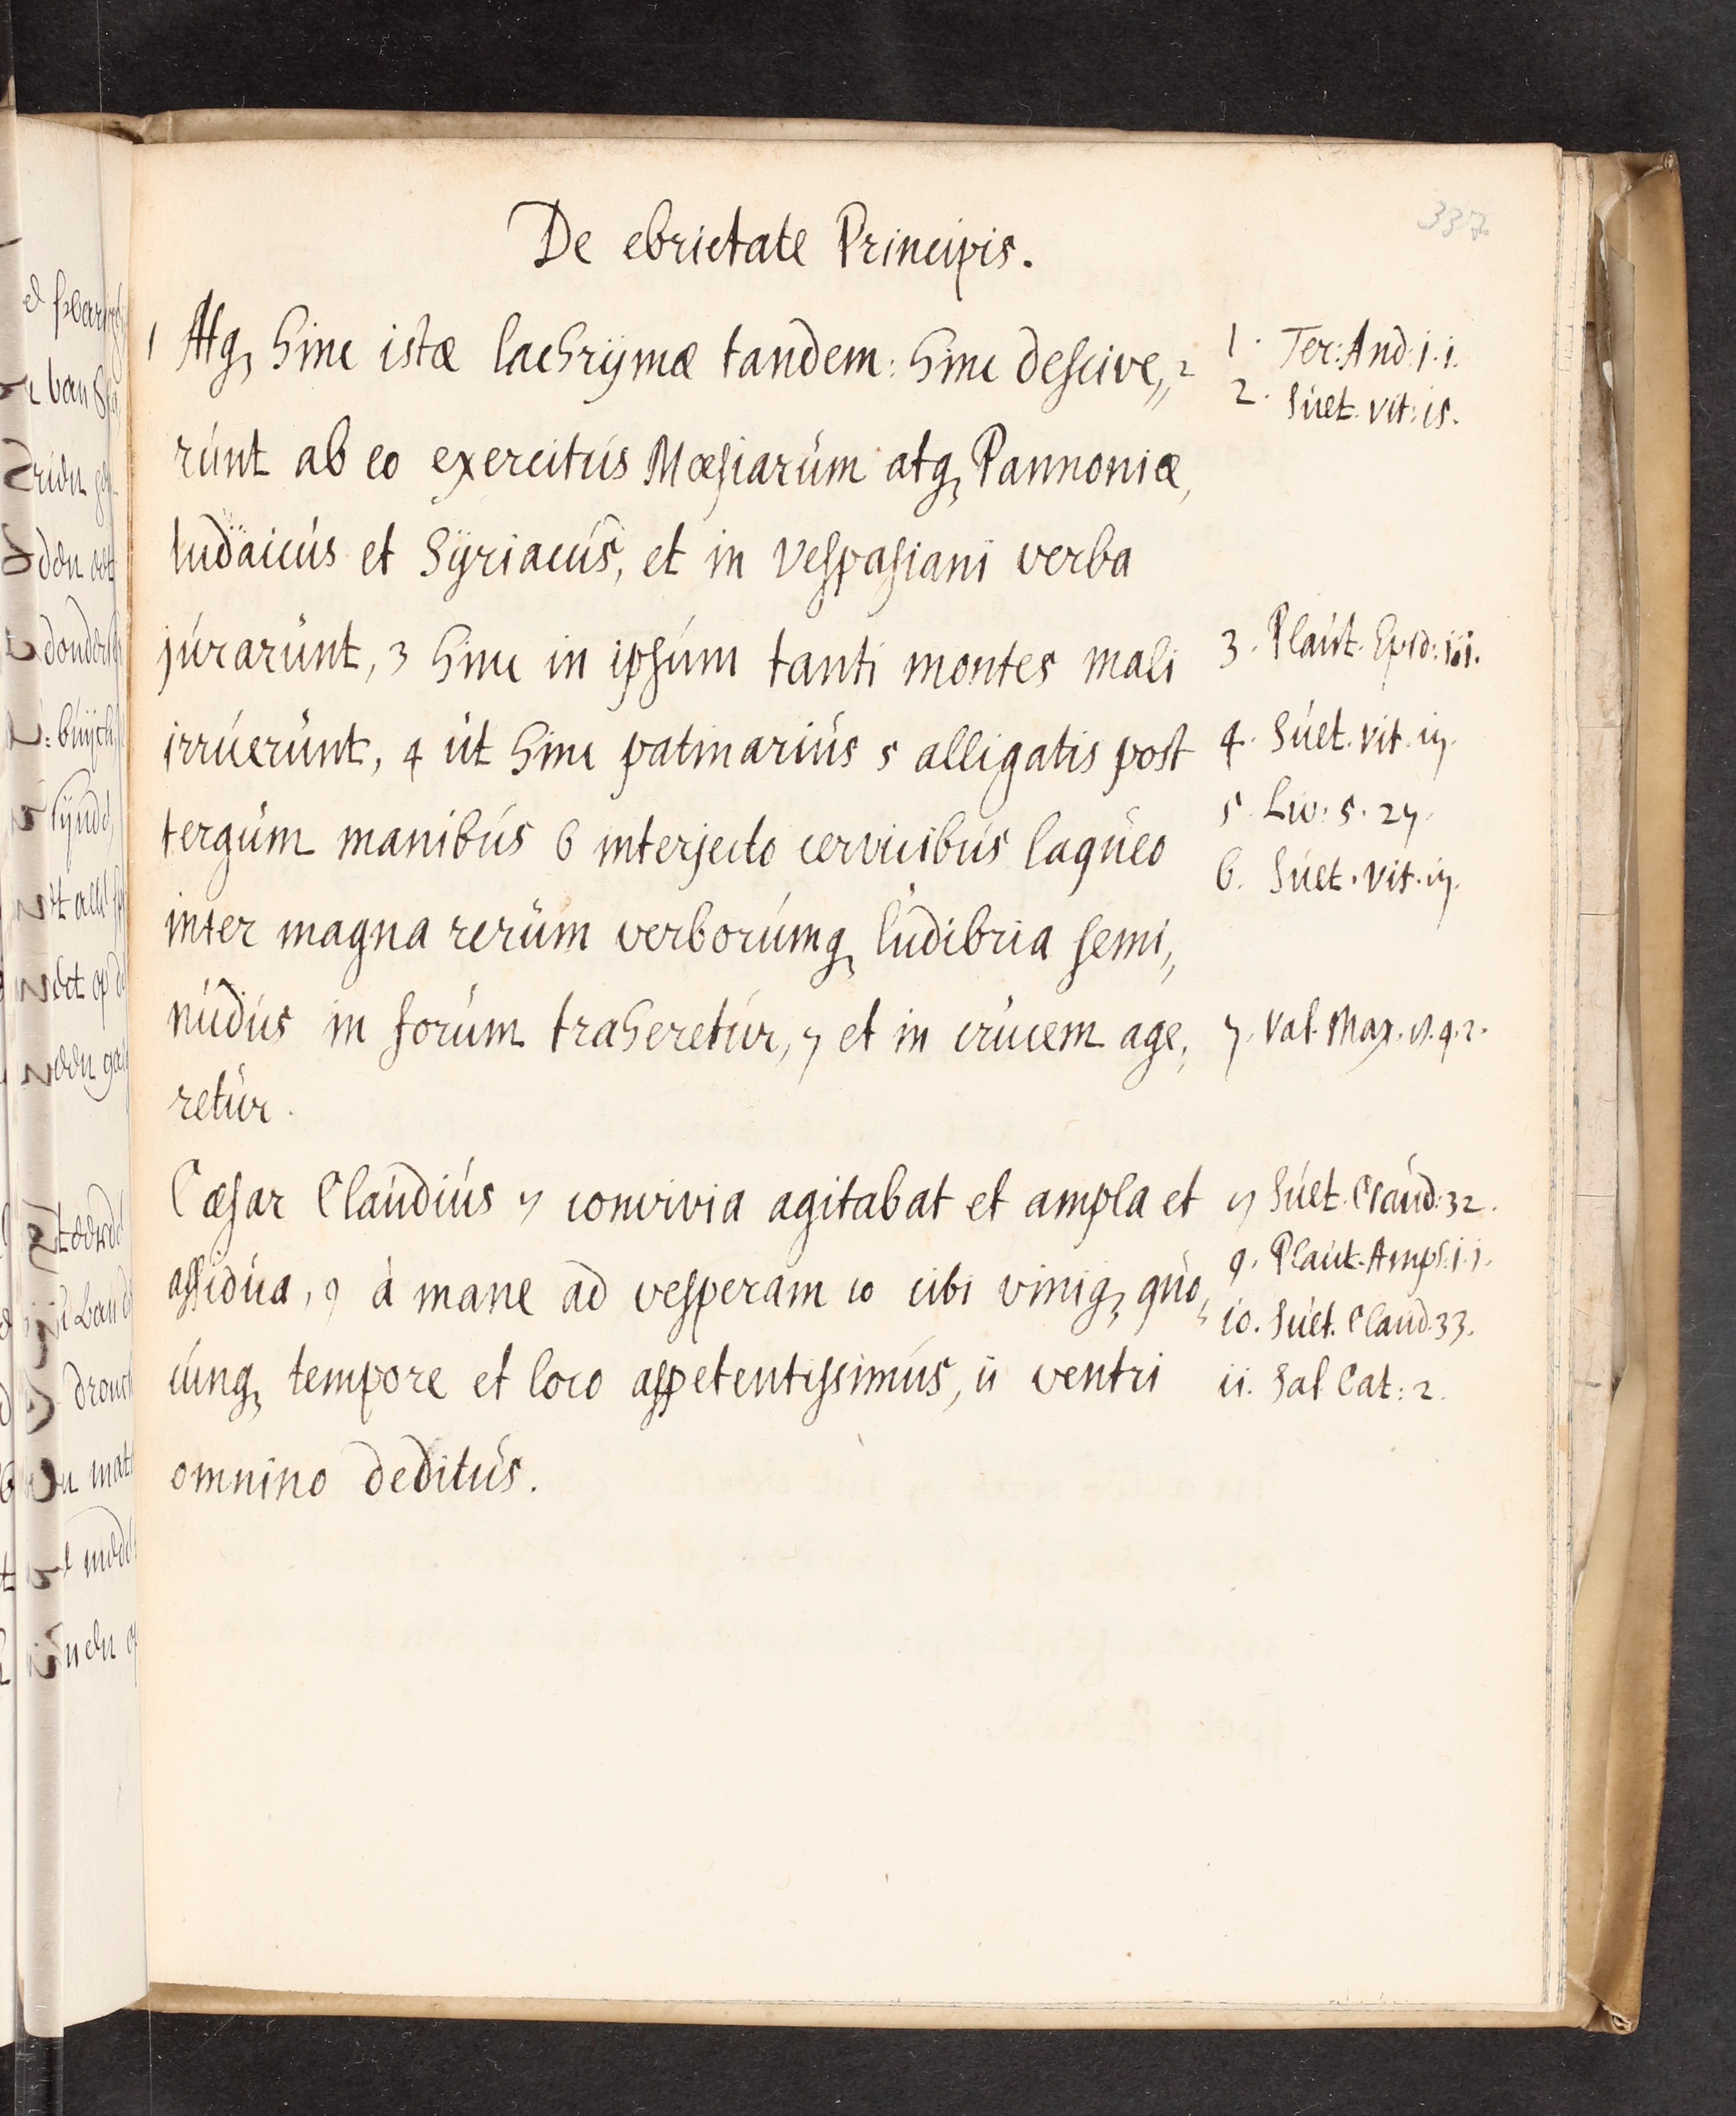 337
De ebrietate Principis.
1 Atq, hinc istæ lachrÿmæ tandem: hinc descive,, 2
rúnt ab eo exercitús Mœsiarúm atq, Pannoniæ,
Iudäicús et Sÿriacús, et in Vespasiani verba
júrarúnt, 3 hinc in ipsúm tanti montes mali
irrúerúnt, 4 út hinc patinariús 5 alligatis post
tergúm manibús 6 interjecto cervicibús laqúeo
inter magna rerúm verborúmq, lúdibria semi,,
núdús in forúm traheretúr, 7 et in crúcem age,,
retúr.
Cæsar Claúdiús 8 convivia agitabat et ampla et
assidúa, 9 à mane ad vesperam 10 cibi viniq, qúo,,
cúnq, tempore et loco appetentissimús, 11 ventri
omnino deditús.
1. Ter: And: 1. 1.
2. Súet. Vit: 15.
3. Plaút. Epid: 1. 1.
4. Súet. Vit. 17.
5. Liv: 5. 27.
6. Súet. Vit. 17.
7. Val. Max. 6. 9. 2.
8 Súet. Claúd: 32.
9. Plaút. Amph: 1. 1.
10. Súet. Claud. 33.
11. Sal Cat: 2.